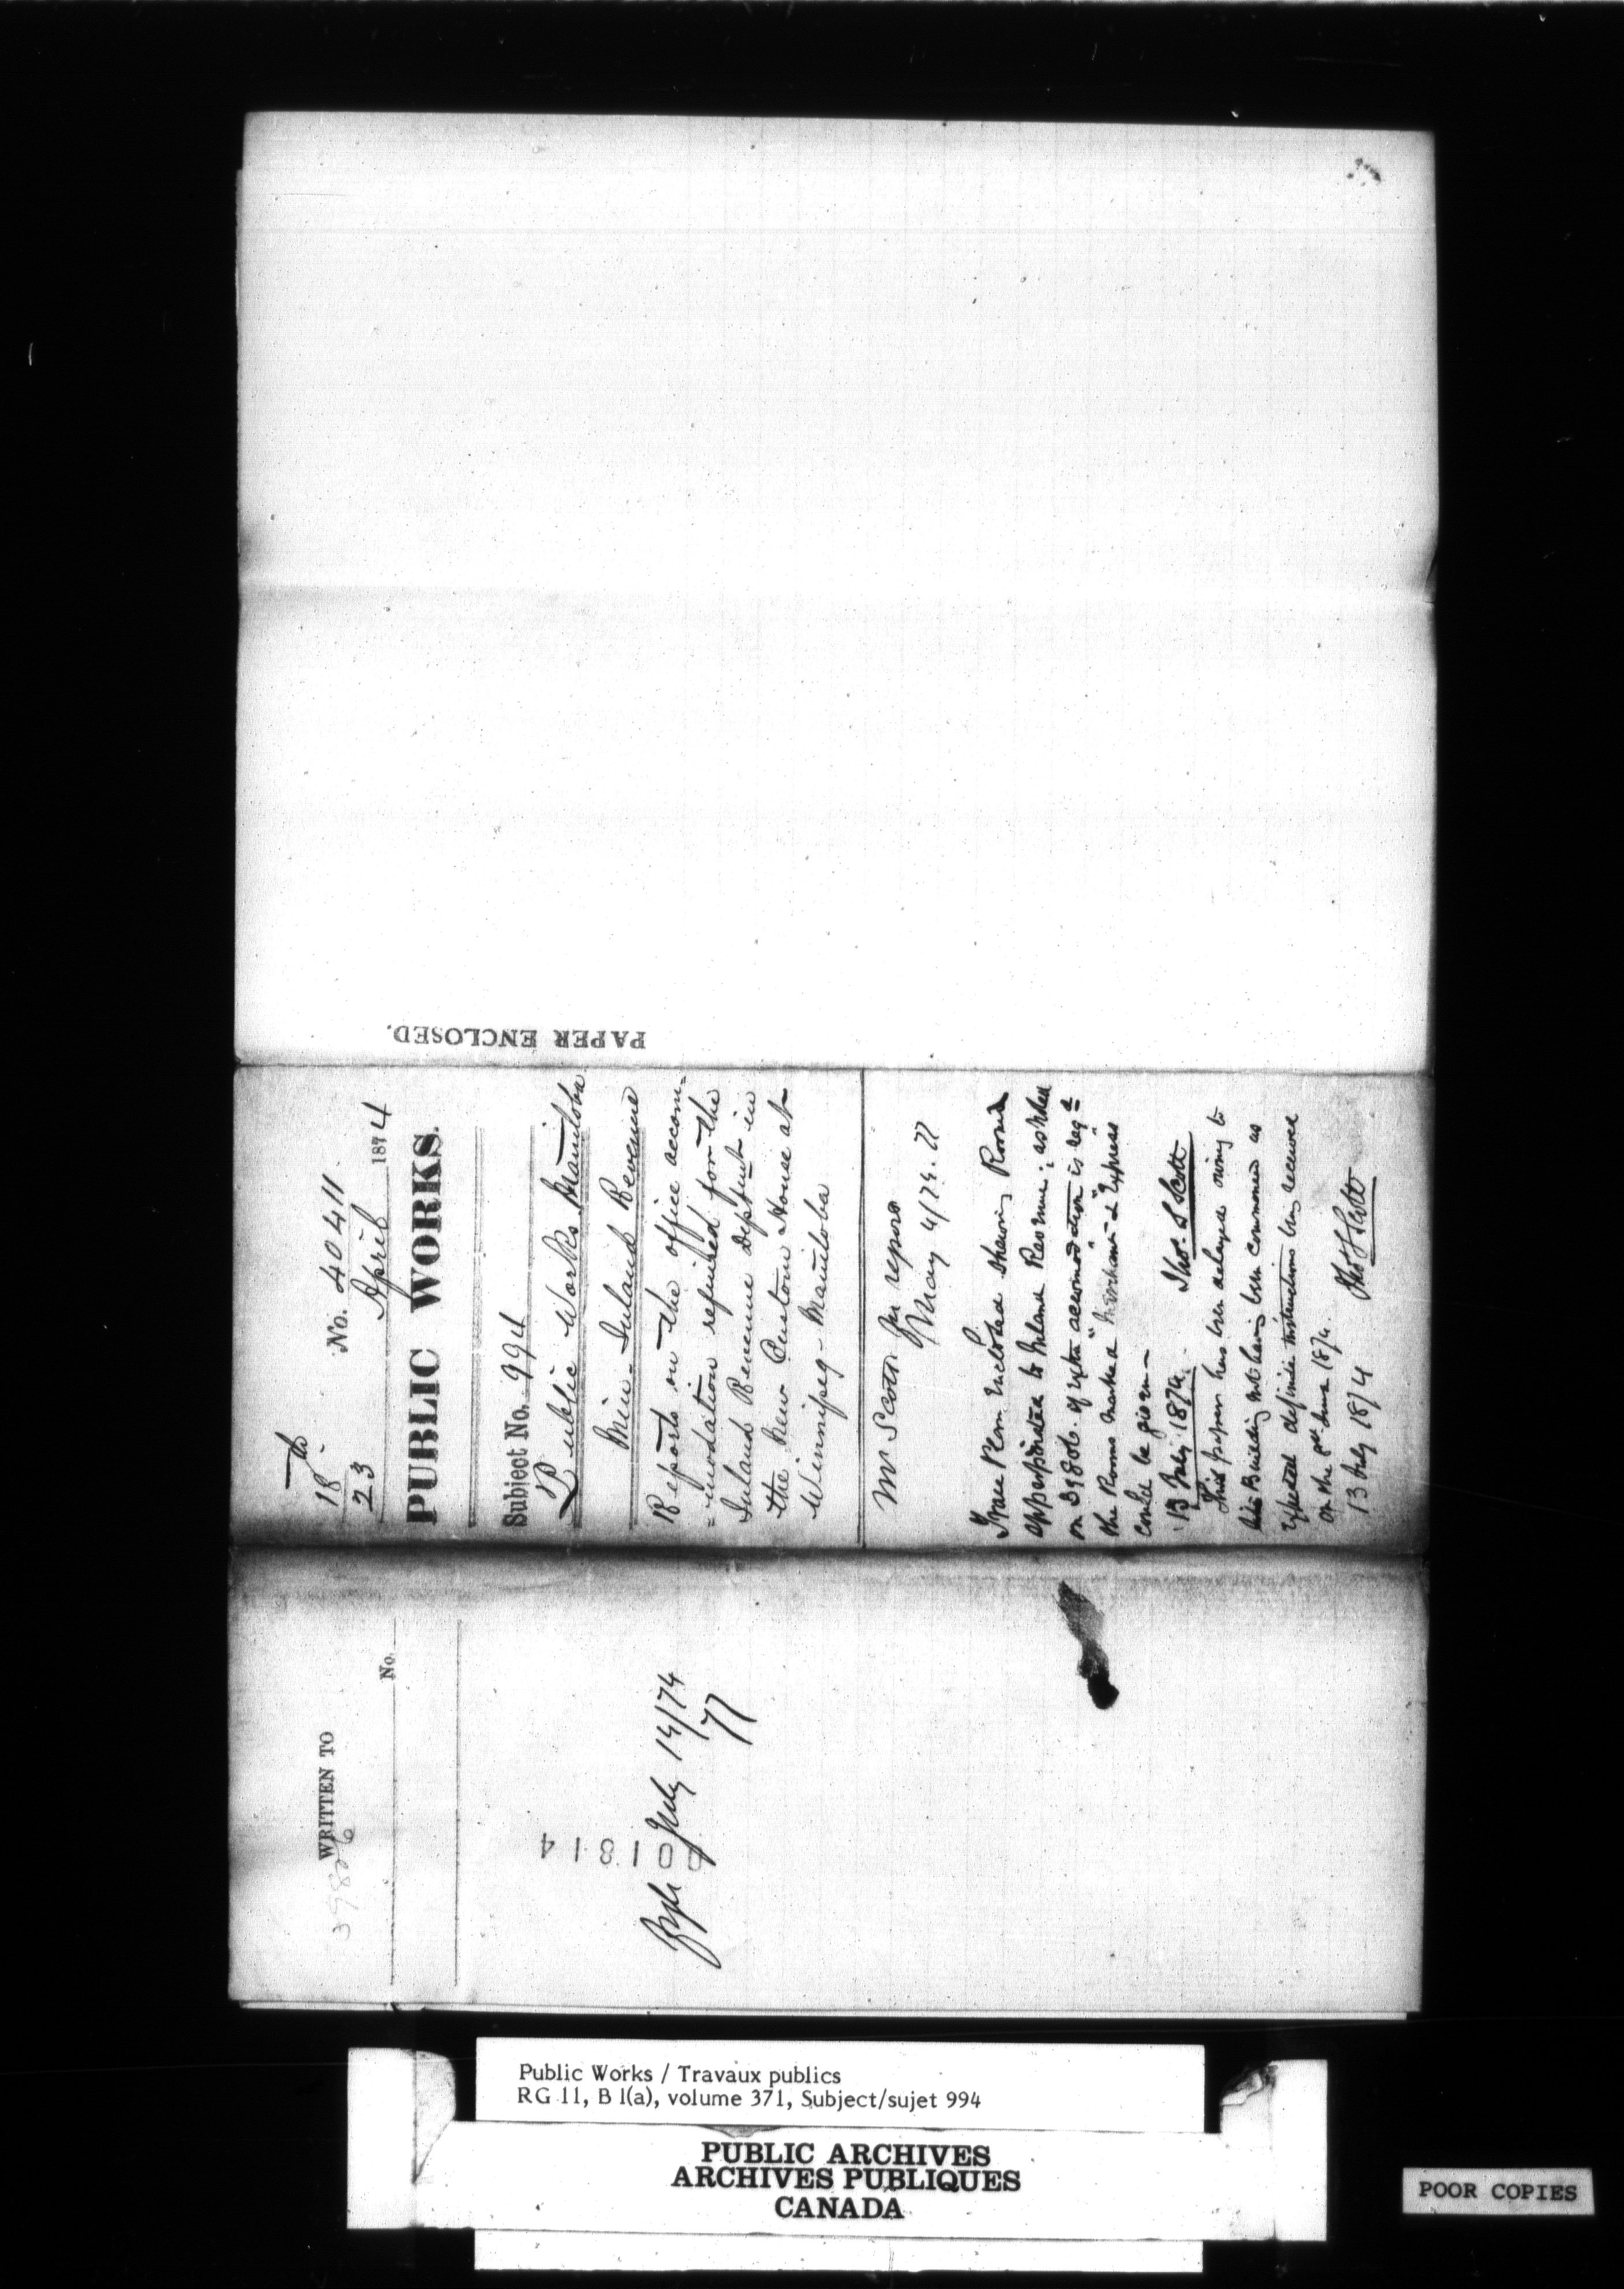 18th
23
No. 40411
April 1874
PUBLIC WORKS.
Subject No. 994
Public Works Manitoba
Min. Inland Revenue
Reports on the office accom=
=modation required for the
Inland Revenue Deptmt in
the New Custom House at
Winnipeg - Manitoba
Mr Scott for report
May 4/74.
Plan Enclosed Shewing Rooms
appropriated to Inland Revenue;
on extra accomodation is reqd
the Rooms marked & "Express"
could be given
13 July 1874. Thos. S Scott
This paper has been delayed owing to
Building not having been commenced as
expected definite instructions being received
on the June 1874.
13 July 1874 Thos S Scott
PAPER ENCLOSED.
WRITTEN TO
39826
No.
July 14/74
001814
Public Works / Travaux publics
RG 11, B 1(a), volume 371, Subject/sujet 994
PUBLIC ARCHIVES
ARCHIVES PUBLIQUES
CANADA
POOR COPIES